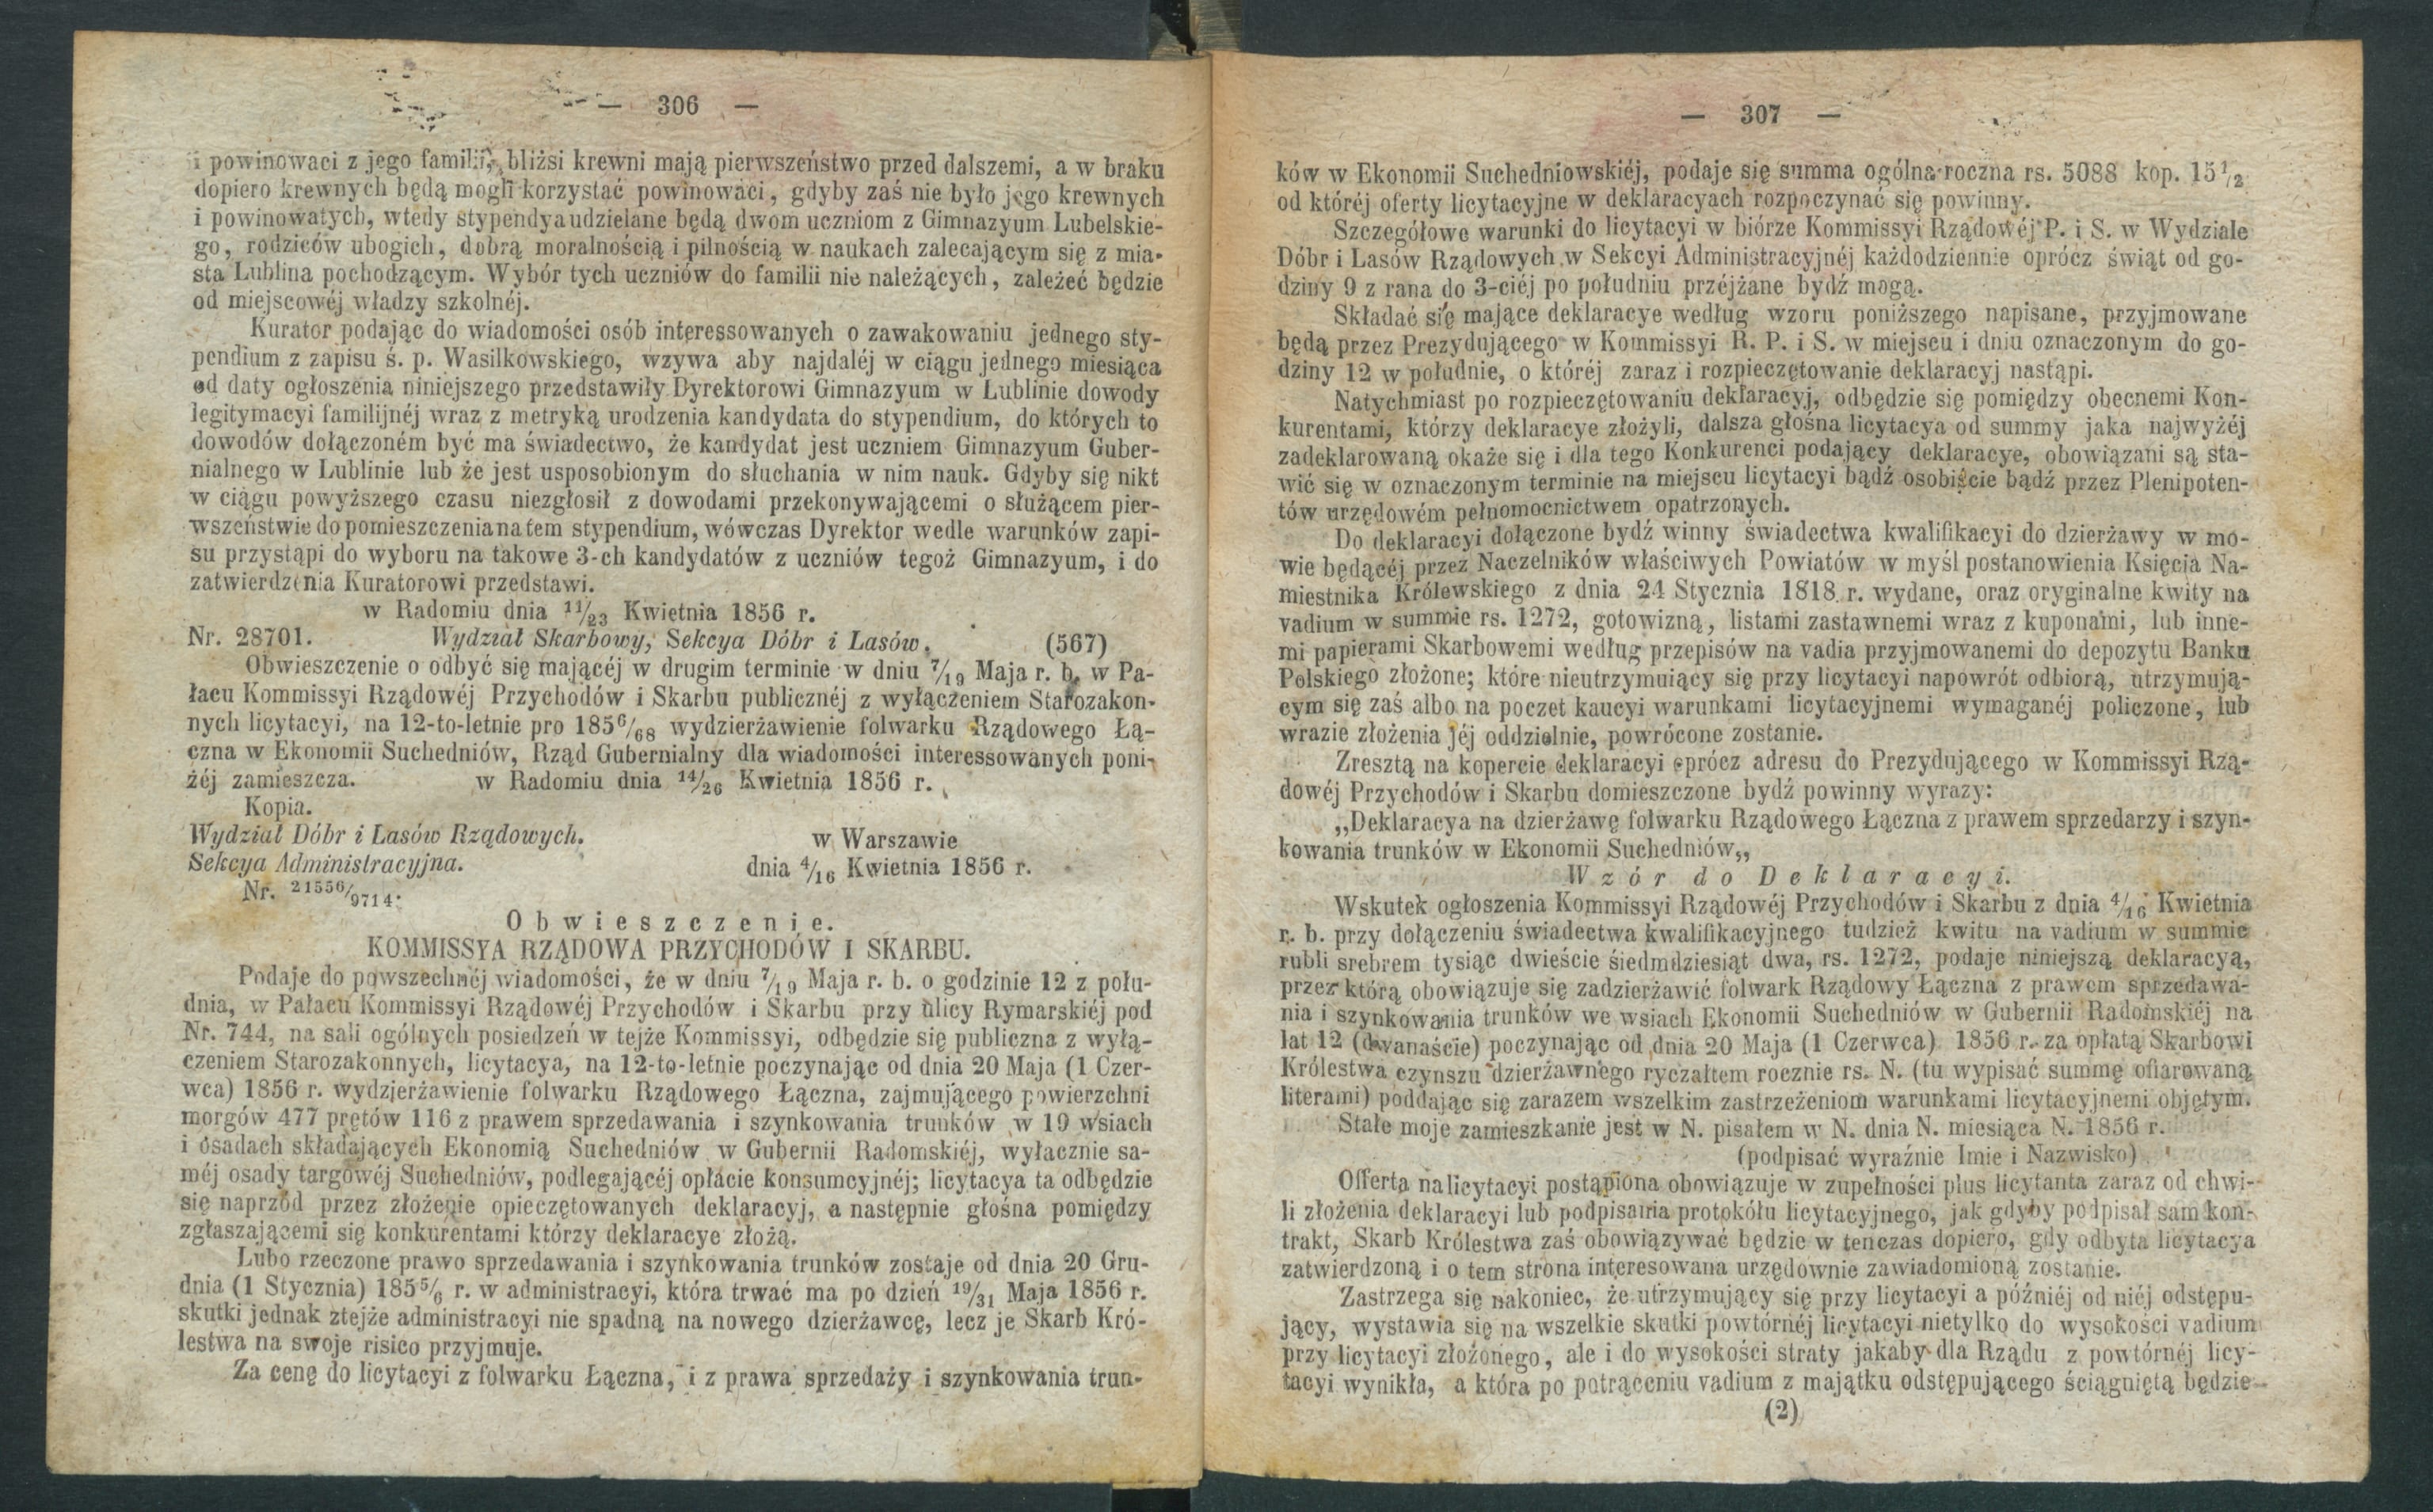 — 306 —
i powinowaci z jego familii, bliżsi krewni mają pierwszeństwo przed dalszemi, a w braku
dopiero krewnych będą mogli korzystać powinowaci, gdyby zaś nie było jego krewnych
i powinowatych, wtedy stypendya udzielane będą dwom uczniom z Gimnazyum Lubelskie-
go, rodziców ubogich, dobrą moralnością i pilnością w naukach zalecającym się z mia-
sta Lublina pochodzącym. Wybór tych uczniów do familii nie należących, zależeć będzie
od miejscowéj władzy szkolnéj.
Kurator podając do wiadomości osób interessowanych o zawakowaniu jednego sty-
pendium z zapisu ś. p. Wasilkowskiego, wzywa aby najdaléj w ciągu jednego miesiąca
od daty ogłoszenia niniejszego przedstawiły Dyrektorowi Gimnazyum w Lublinie dowody
legitymacyi familijnéj wraz z metryką urodzenia kandydata do stypendium, do których to
dowodów dołączoném być ma świadectwo, że kandydat jest uczniem Gimnazyum Guber-
nialnego w Lublinie lub że jest usposobionym do słuchania w nim nauk. Gdyby się nikt
w ciągu powyższego czasu niezgłosił z dowodami przekonywającemi o służącem pier-
wszeństwie do pomieszczenia na tem stypendium, wówczas Dyrektor wedle warunków zapi-
su przystąpi do wyboru na takowe 3-ch kandydatów z uczniów tegoż Gimnazyum, i do
zatwierdzenia Kuratorowi przedstawi.
w Radomiu dnia 11/23 Kwietnia 1856 r.
Nr. 28701. Wydział Skarbowy, Sekcya Dóbr i Lasów. (567)
Obwieszczenie o odbyć się mającéj w drugim terminie w dniu 7/19 Maja r. b. w Pa-
łacu Kommissyi Rządowéj Przychodów i Skarbu publicznéj z wyłączeniem Starozakon-
nych licytacyi, na 12-to-letnie pro 1856/68 wydzierżawienie folwarku Rządowego Łą-
czna w Ekonomii Suchedniów, Rząd Gubernialny dla wiadomości interessowanych poni-
żéj zamieszcza. w Radomiu dnia 14/26 Kwietnia 1856 r.
Kopia.
Wydział Dóbr i Lasów Rządowych. w Warszawie
Sekcya Administracyjna. dnia 4/16 Kwietnia 1856 r.
Nr. 21556/9714.
Obwieszczenie.
KOMMISSYA RZĄDOWA PRZYCHODÓW I SKARBU.
Podaje do powszechnéj wiadomości, że w dniu 7/19 Maja r. b. o godzinie 12 z połu-
dnia, w Pałacu Kommissyi Rządowéj Przychodów i Skarbu przy ulicy Rymarskiéj pod
Nr. 744, na sali ogólnych posiedzeń w tejże Kommissyi, odbędzie się publiczna z wyłą-
czeniem Starozakonnych, licytacya, na 12-to-letnie poczynając od dnia 20 Maja (1 Czer-
wca) 1856 r. wydzierżawienie folwarku Rządowego Łączna, zajmującego powierzchni
morgów 477 prętów 116 z prawem sprzedawania i szynkowania trunków w 19 wsiach
i osadach składających Ekonomią Suchedniów w Gubernii Radomskiéj, wyłacznie sa-
méj osady targowéj Suchedniów, podlegającéj opłacie konsumcyjnéj; licytacya ta odbędzie
się naprzód przez złożenie opieczętowanych deklaracyj, a następnie głośna pomiędzy
zgłaszającemi się konkurentami którzy deklaracye złożą.
Lubo rzeczone prawo sprzedawania i szynkowania trunków zostaje od dnia 20 Gru-
dnia (1 Stycznia) 1855/6 r. w administracyi, która trwać ma po dzień 19/31 Maja 1856 r.
skutki jednak ztejże administracyi nie spadną na nowego dzierżawcę, lecz je Skarb Kró-
lestwa na swoje risico przyjmuje.
Za cenę do licytacyi z folwarku Łączna, i z prawa sprzedaży i szynkowania trun-
— 307 —
ków w Ekonomii Suchedniowskiéj, podaje się summa ogólna roczna rs. 5088 kop. 15 1/2
od któréj oferty licytacyjne w deklaracyach rozpoczynać się powinny.
Szczegółowe warunki do licytacyi w biórze Kommissyi Rządowéj P. i S. w Wydziale
Dóbr i Lasów Rządowych w Sekcyi Administracyjnéj każdodziennie oprócz świąt od go-
dziny 9 z rana do 3-ciéj po południu przéjżane bydź mogą.
Składać się mające deklaracye według wzoru poniższego napisane, przyjmowane
będą przez Prezydującego w Kommissyi R. P. i S. w miejscu i dniu oznaczonym do go-
dziny 12 w południe, o któréj zaraz i rozpieczętowanie deklaracyj nastąpi.
Natychmiast po rozpieczętowaniu deklaracyj, odbędzie się pomiędzy obecnemi Kon-
kurentami, którzy deklaracye złożyli, dalsza głośna licytacya od summy jaka najwyżéj
zadeklarowaną okaże się i dla tego Konkurenci podający deklaracye, obowiązani są sta-
wić się w oznaczonym terminie na miejscu licytacyi bądź osobiście bądź przez Plenipoten-
tów urzędowém pełnomocnictwem opatrzonych.
Do deklaracyi dołączone bydź winny świadectwa kwalifikacyi do dzierżawy w mo-
wie będącéj przez Naczelników właściwych Powiatów w myśl postanowienia Księcia Na-
miestnika Królewskiego z dnia 24 Stycznia 1818 r. wydane, oraz oryginalne kwity na
vadium w summie rs. 1272, gotowizną, listami zastawnemi wraz z kuponami, lub inne-
mi papierami Skarbowemi według przepisów na vadia przyjmowanemi do depozytu Banku
Polskiego złożone; które nieutrzymuiący się przy licytacyi napowrót odbiorą, utrzymują-
cym się zaś albo na poczet kaucyi warunkami licytacyjnemi wymaganéj policzone, lub
wrazie złożenia jéj oddzielnie, powrócone zostanie.
Zresztą na kopercie deklaracyi oprócz adresu do Prezydującego w Kommissyi Rzą-
dowéj Przychodów i Skarbu domieszczone bydź powinny wyrazy:
,,Deklaracya na dzierżawę folwarku Rządowego Łączna z prawem sprzedarzy i szyn-
kowania trunków w Ekonomii Suchedniów,,
Wzór do Deklaracyi.
Wskutek ogłoszenia Kommissyi Rządowéj Przychodów i Skarbu z dnia 4/16 Kwietnia
r. b. przy dołączeniu świadectwa kwalifikacyjnego tudzież kwitu na vadium w summie
rubli srebrem tysiąc dwieście śiedmdziesiąt dwa, rs. 1272, podaje niniejszą deklaracyą,
przez którą obowiązuje się zadzierżawić folwark Rządowy Łączna z prawem sprzedawa-
nia i szynkowania trunków we wsiach Ekonomii Suchedniów w Gubernii Radomskiéj na
lat 12 (dwanaście) poczynając od dnia 20 Maja (1 Czerwca) 1856 r. za opłatą Skarbowi
Królestwa czynszu dzierżawnego ryczałtem rocznie rs. N. (tu wypisać summę ofiarowaną
literami) poddając się zarazem wszelkim zastrzeżeniom warunkami licytacyjnemi objętym.
Stałe moje zamieszkanie jest w N. pisałem w N. dnia N. miesiąca N. 1856 r.
(podpisać wyraźnie Imie i Nazwisko)
Offerta na licytacyi postąpiona obowiązuje w zupełności plus licytanta zaraz od chwi-
li złożenia deklaracyi lub podpisania protokółu licytacyjnego, jak gdyby podpisał sam kon-
trakt, Skarb Królestwa zaś obowiązywać będzie w tenczas dopiero, gdy odbyta licytacya
zatwierdzoną i o tem strona interesowana urzędownie zawiadomioną zostanie.
Zastrzega się nakoniec, że utrzymujący się przy licytacyi a późniéj od niéj odstępu-
jący, wystawia się na wszelkie skutki powtórnéj licytacyi nietylko do wysokości vadium
przy licytacyi złożonego, ale i do wysokości straty jakaby dla Rządu z powtórnéj licy-
tacyi wynikła, a która po potrąceniu vadium z majątku odstępującego ściągniętą będzie
(2)